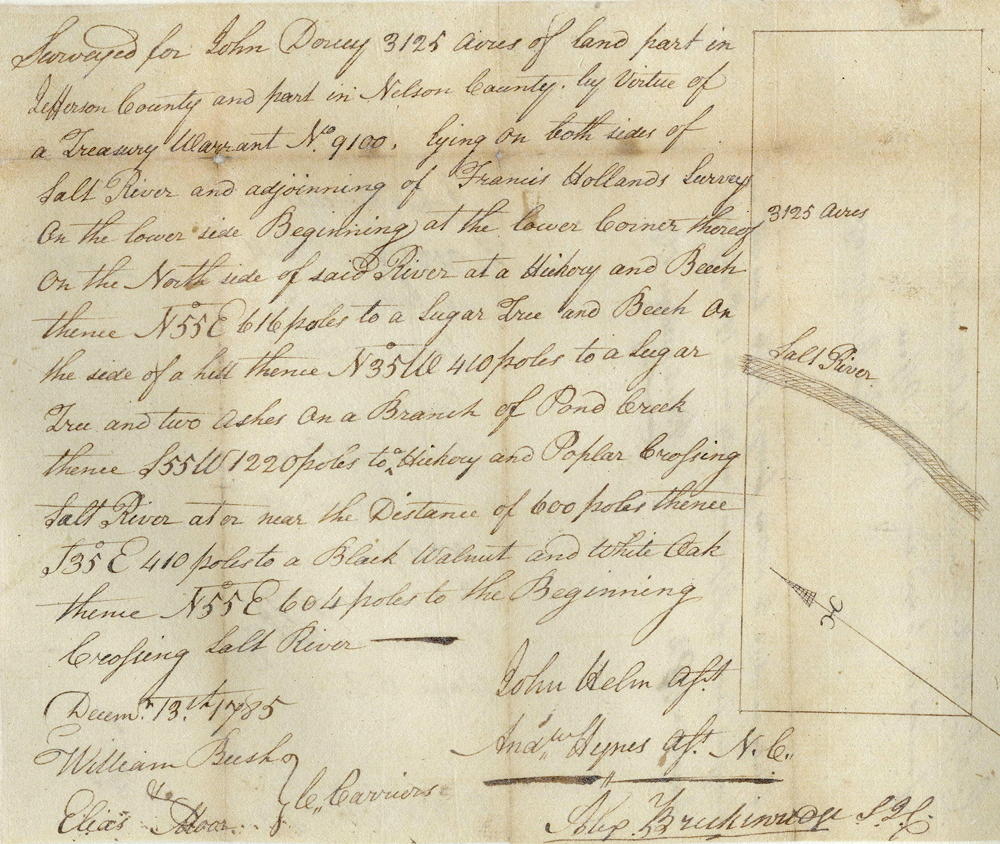 Surveyed for John Dorcey 3125 Acres of land part in
Jefferson County and part in Nelson County. by Virtue of
a Treasury Warrant No. 9100. lying on both sides of
Salt River and adjoinning of Francis Hollands Survey
On the lower side Beginning at the lower Corner thereof
On the North side of said River at a Hickory and Beech
thence N55°E 616 poles to a Sugar Tree and Beech On
the side of a hill thence N35°W 410 poles to a Sugar
Tree and two ashes On a Branch of Pond Creek
thence S55W 1220 poles to a Hickory and Poplar Crossing
Salt River at or near the Distance of 600 poles thence
S35°E 410 poles to a Black Walnut and White Oak
thence N55°E 604 poles to the Beginning
Crossing Salt River
Decemr. 13th 1785
William Bush
Elias
C,, Carriers
John Helm Asst
Andw,, Hynes Asst. N. C.
Alexr. Breckinridge S.J.C.
3125 Acres
Salt River